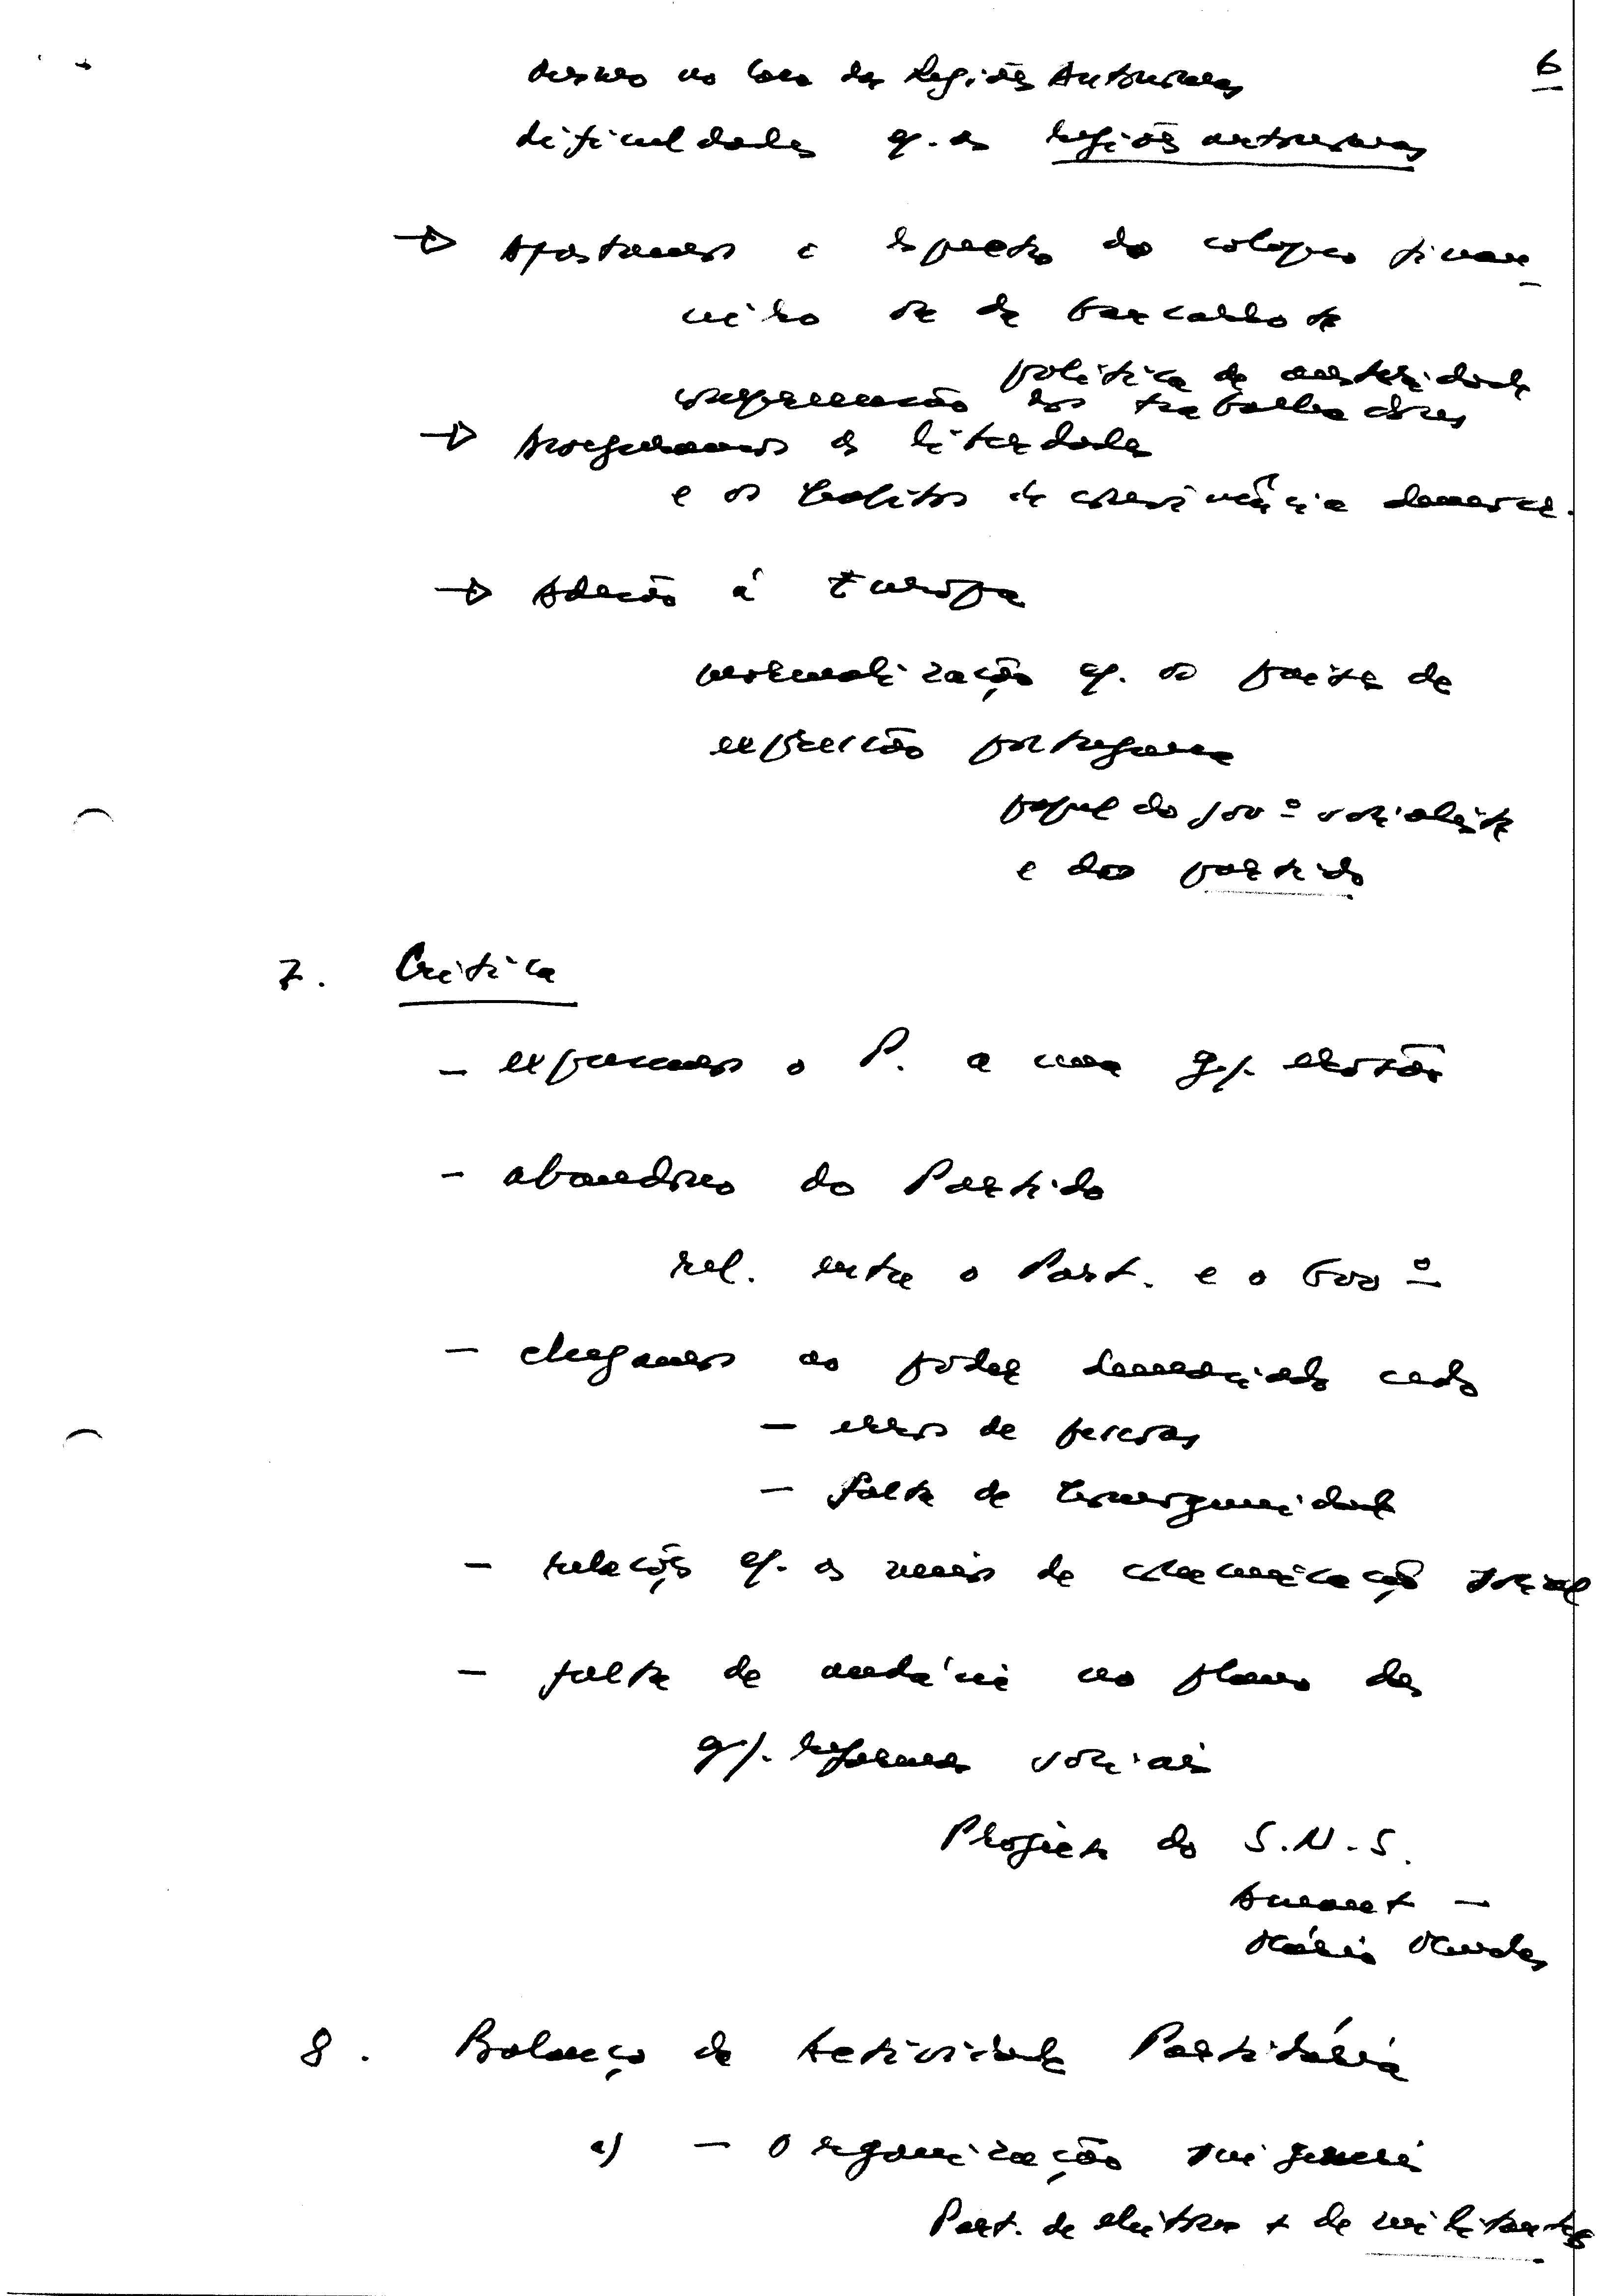 6
mesmo no caso das Regiões Autónomas
dificuldades q. as regiões autónomas
→ Afastamos o espectro do colapso finan-
ceiro e da bancarrota
política de austeridade
compreensão dos trabalhadores
→ Asseguramos as liberdades
e os hábitos de convivência democrá.
→ Adesão à Europa
normalização c/. os países de
expressão portuguesa
papel do gov.º socialista
e do partido
7. Crítica
- expusemos o P. a uma g/. erosão
- abandono do Partido
rel. entre o Part. e o Gov.º
- chegamos ao poder demasiado cedo
- erros de pessoas
- falta de homogeneidade
- relações c/. os meios de comunicação social
- falta de audácia no plano das
g/. reformas sociais
Projecto do S.N.S.
Arnaut -
Mário Mendes
8. Balanço da Actividade Partidária
a) - Organização sui generis
Part. de eleitores + de militantes